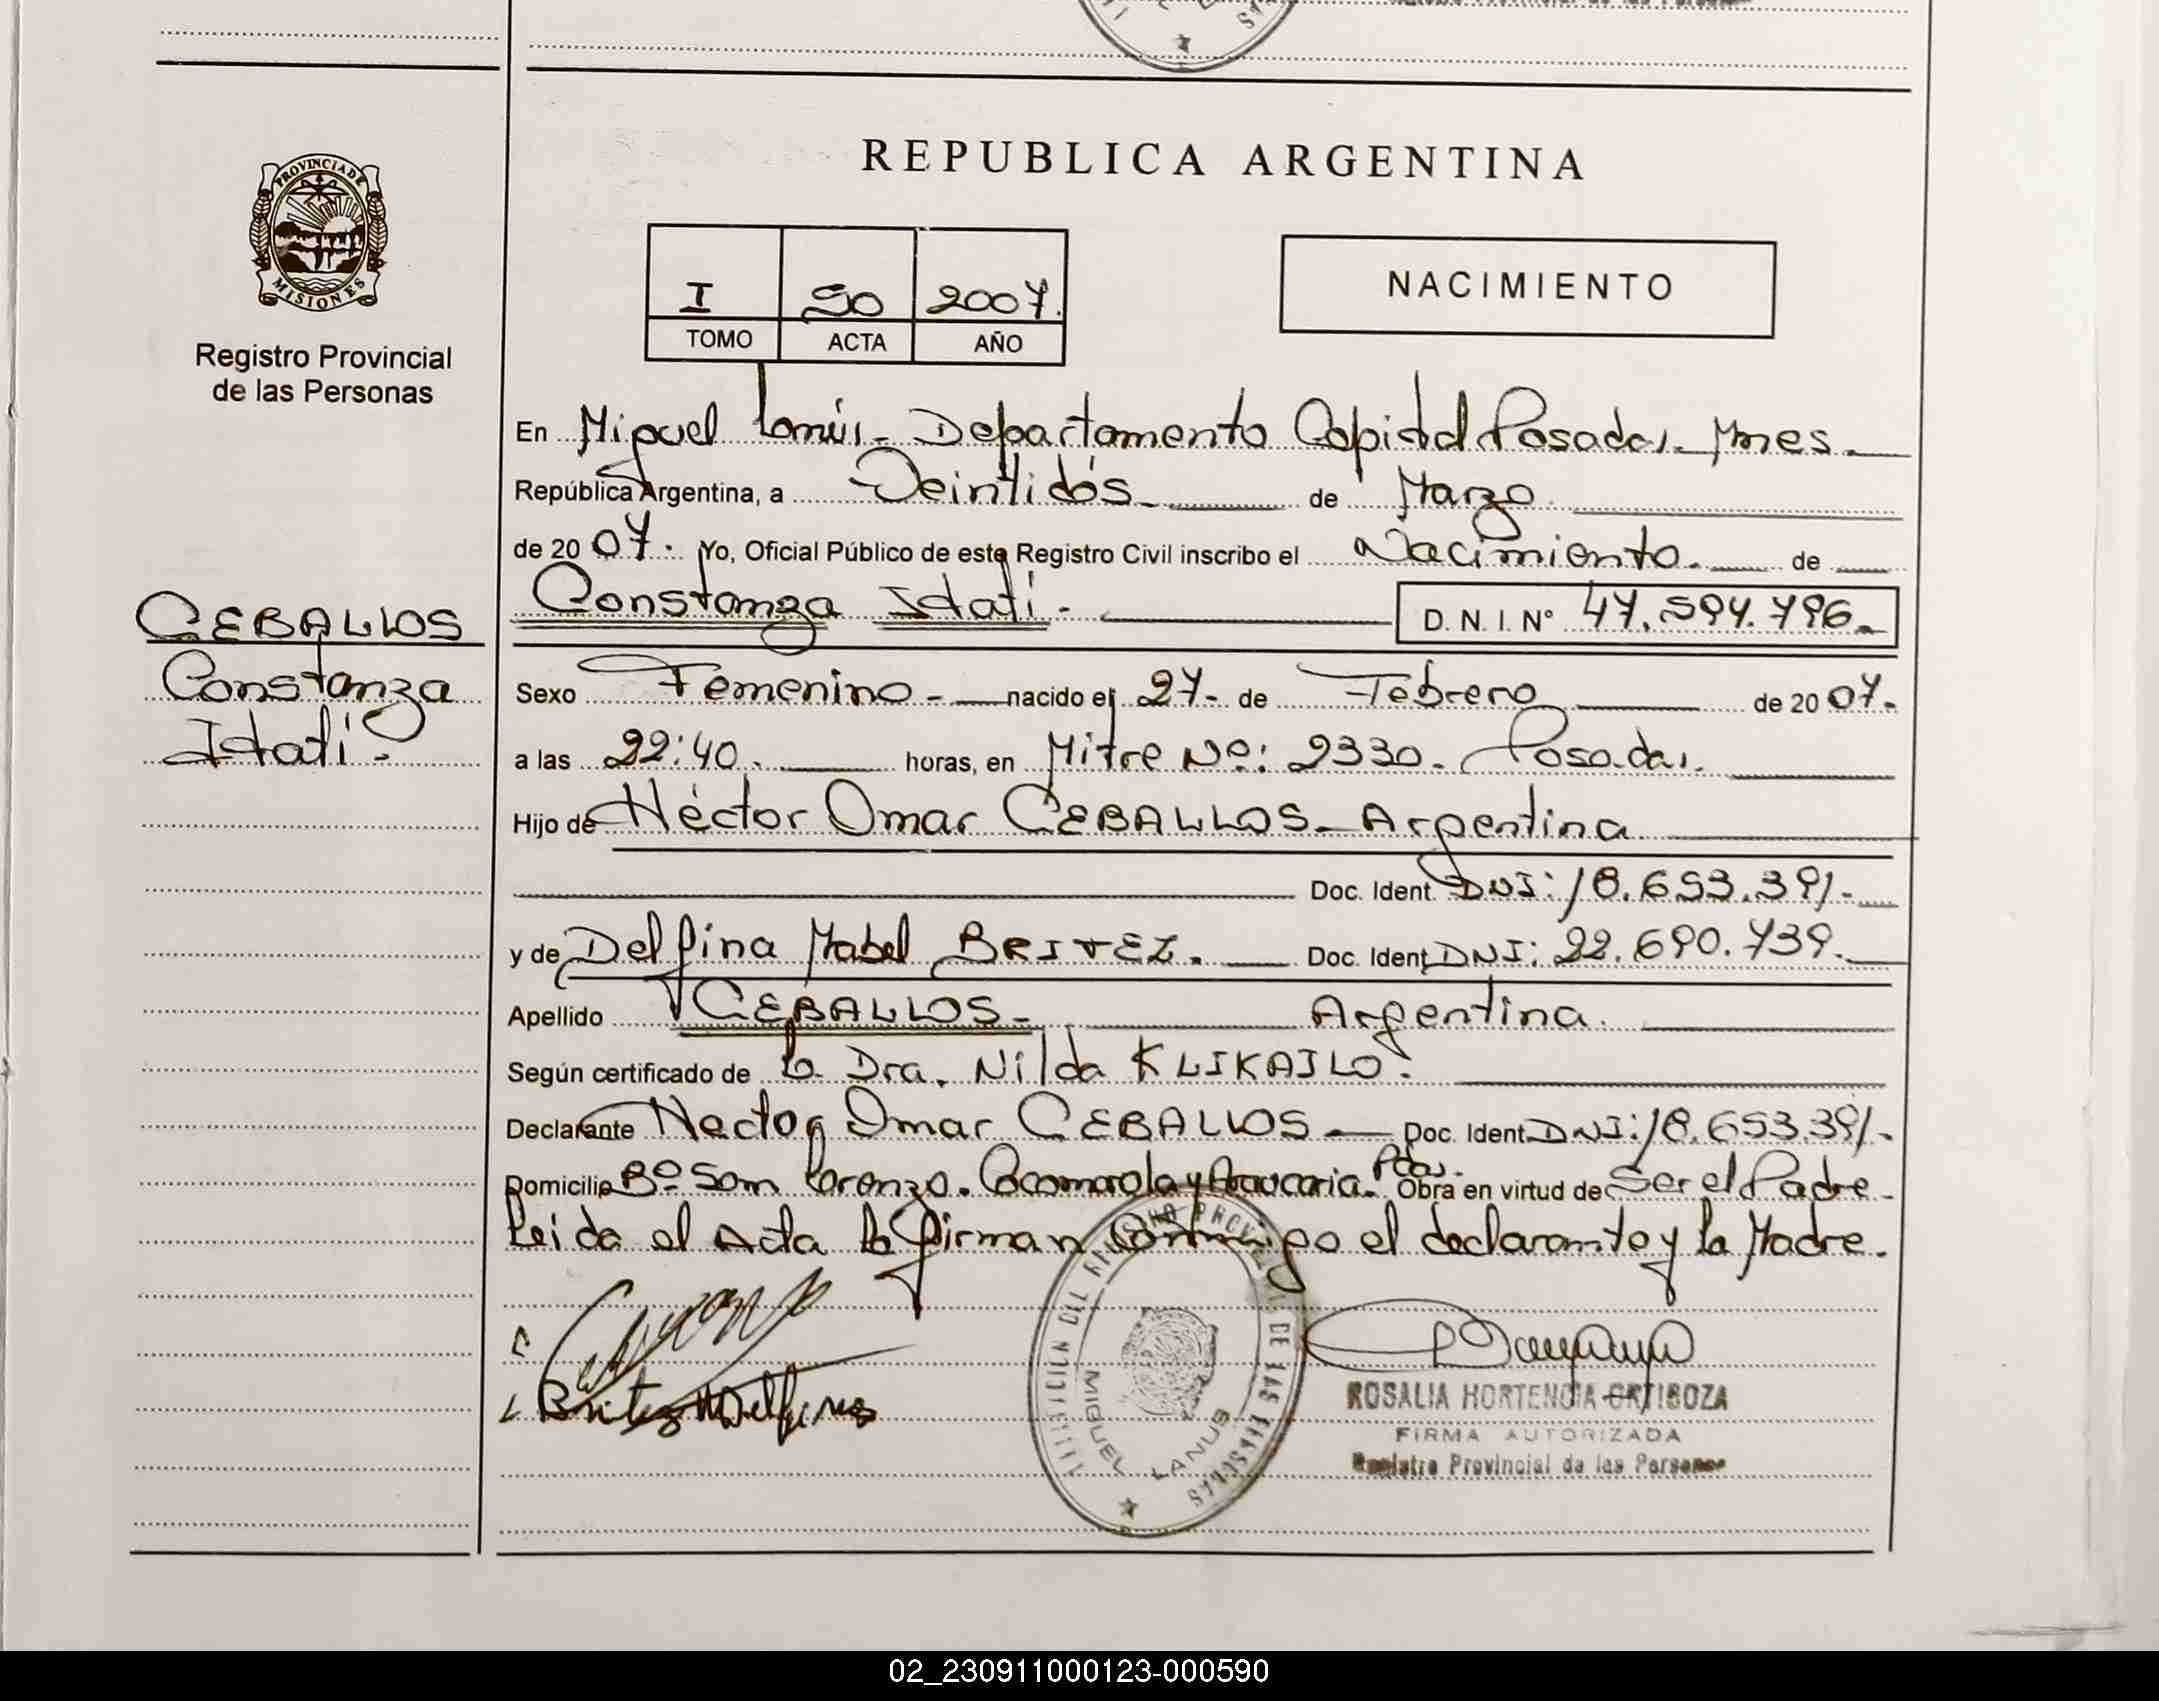 PROVINCIA DE
MISIONES
Registro Provincial
de las Personas
CEBALLOS
Constanza
Itatí.-
REPUBLICA ARGENTINA
I 50 2007.
TOMO ACTA AÑO
NACIMIENTO
En Miguel Lanús - Departamento Capital Posadas - Mnes -
República Argentina, a Veintidós de Marzo
de 20 07. Yo, Oficial Público de este Registro Civil inscribo el Nacimiento. de
Constanza Itatí.- D. N. I. N° 47.594.796.-
Sexo Femenino - nacido el 27- de Febrero de 20 07.-
a las 22:40. horas, en Mitre Nº: 2330. Posadas.
Hijo de Héctor Omar CEBALLOS - Argentina
Doc. Ident. DNI: 18.653.391.-
y de Delfina Mabel BRITEZ. Doc. Ident. DNI: 22.690.739.
Apellido CEBALLOS - Argentina.
Según certificado de la Dra. Nilda KLIKAILO.
Declarante Hector Omar CEBALLOS - Doc. Ident. DNI: 18.653.391.-
Domicilio Bº San Lorenzo. Cocomarola y Araucaria. Pdas. Obra en virtud de Ser el Padre.
Leida el Acta la firman conmigo el declarante y la Madre.
Britez Delfina
MIGUEL LANUS
ROSALIA HORTENCIA ORTIGOZA
FIRMA AUTORIZADA
Registro Provincial de las Personas
02_230911000123-000590